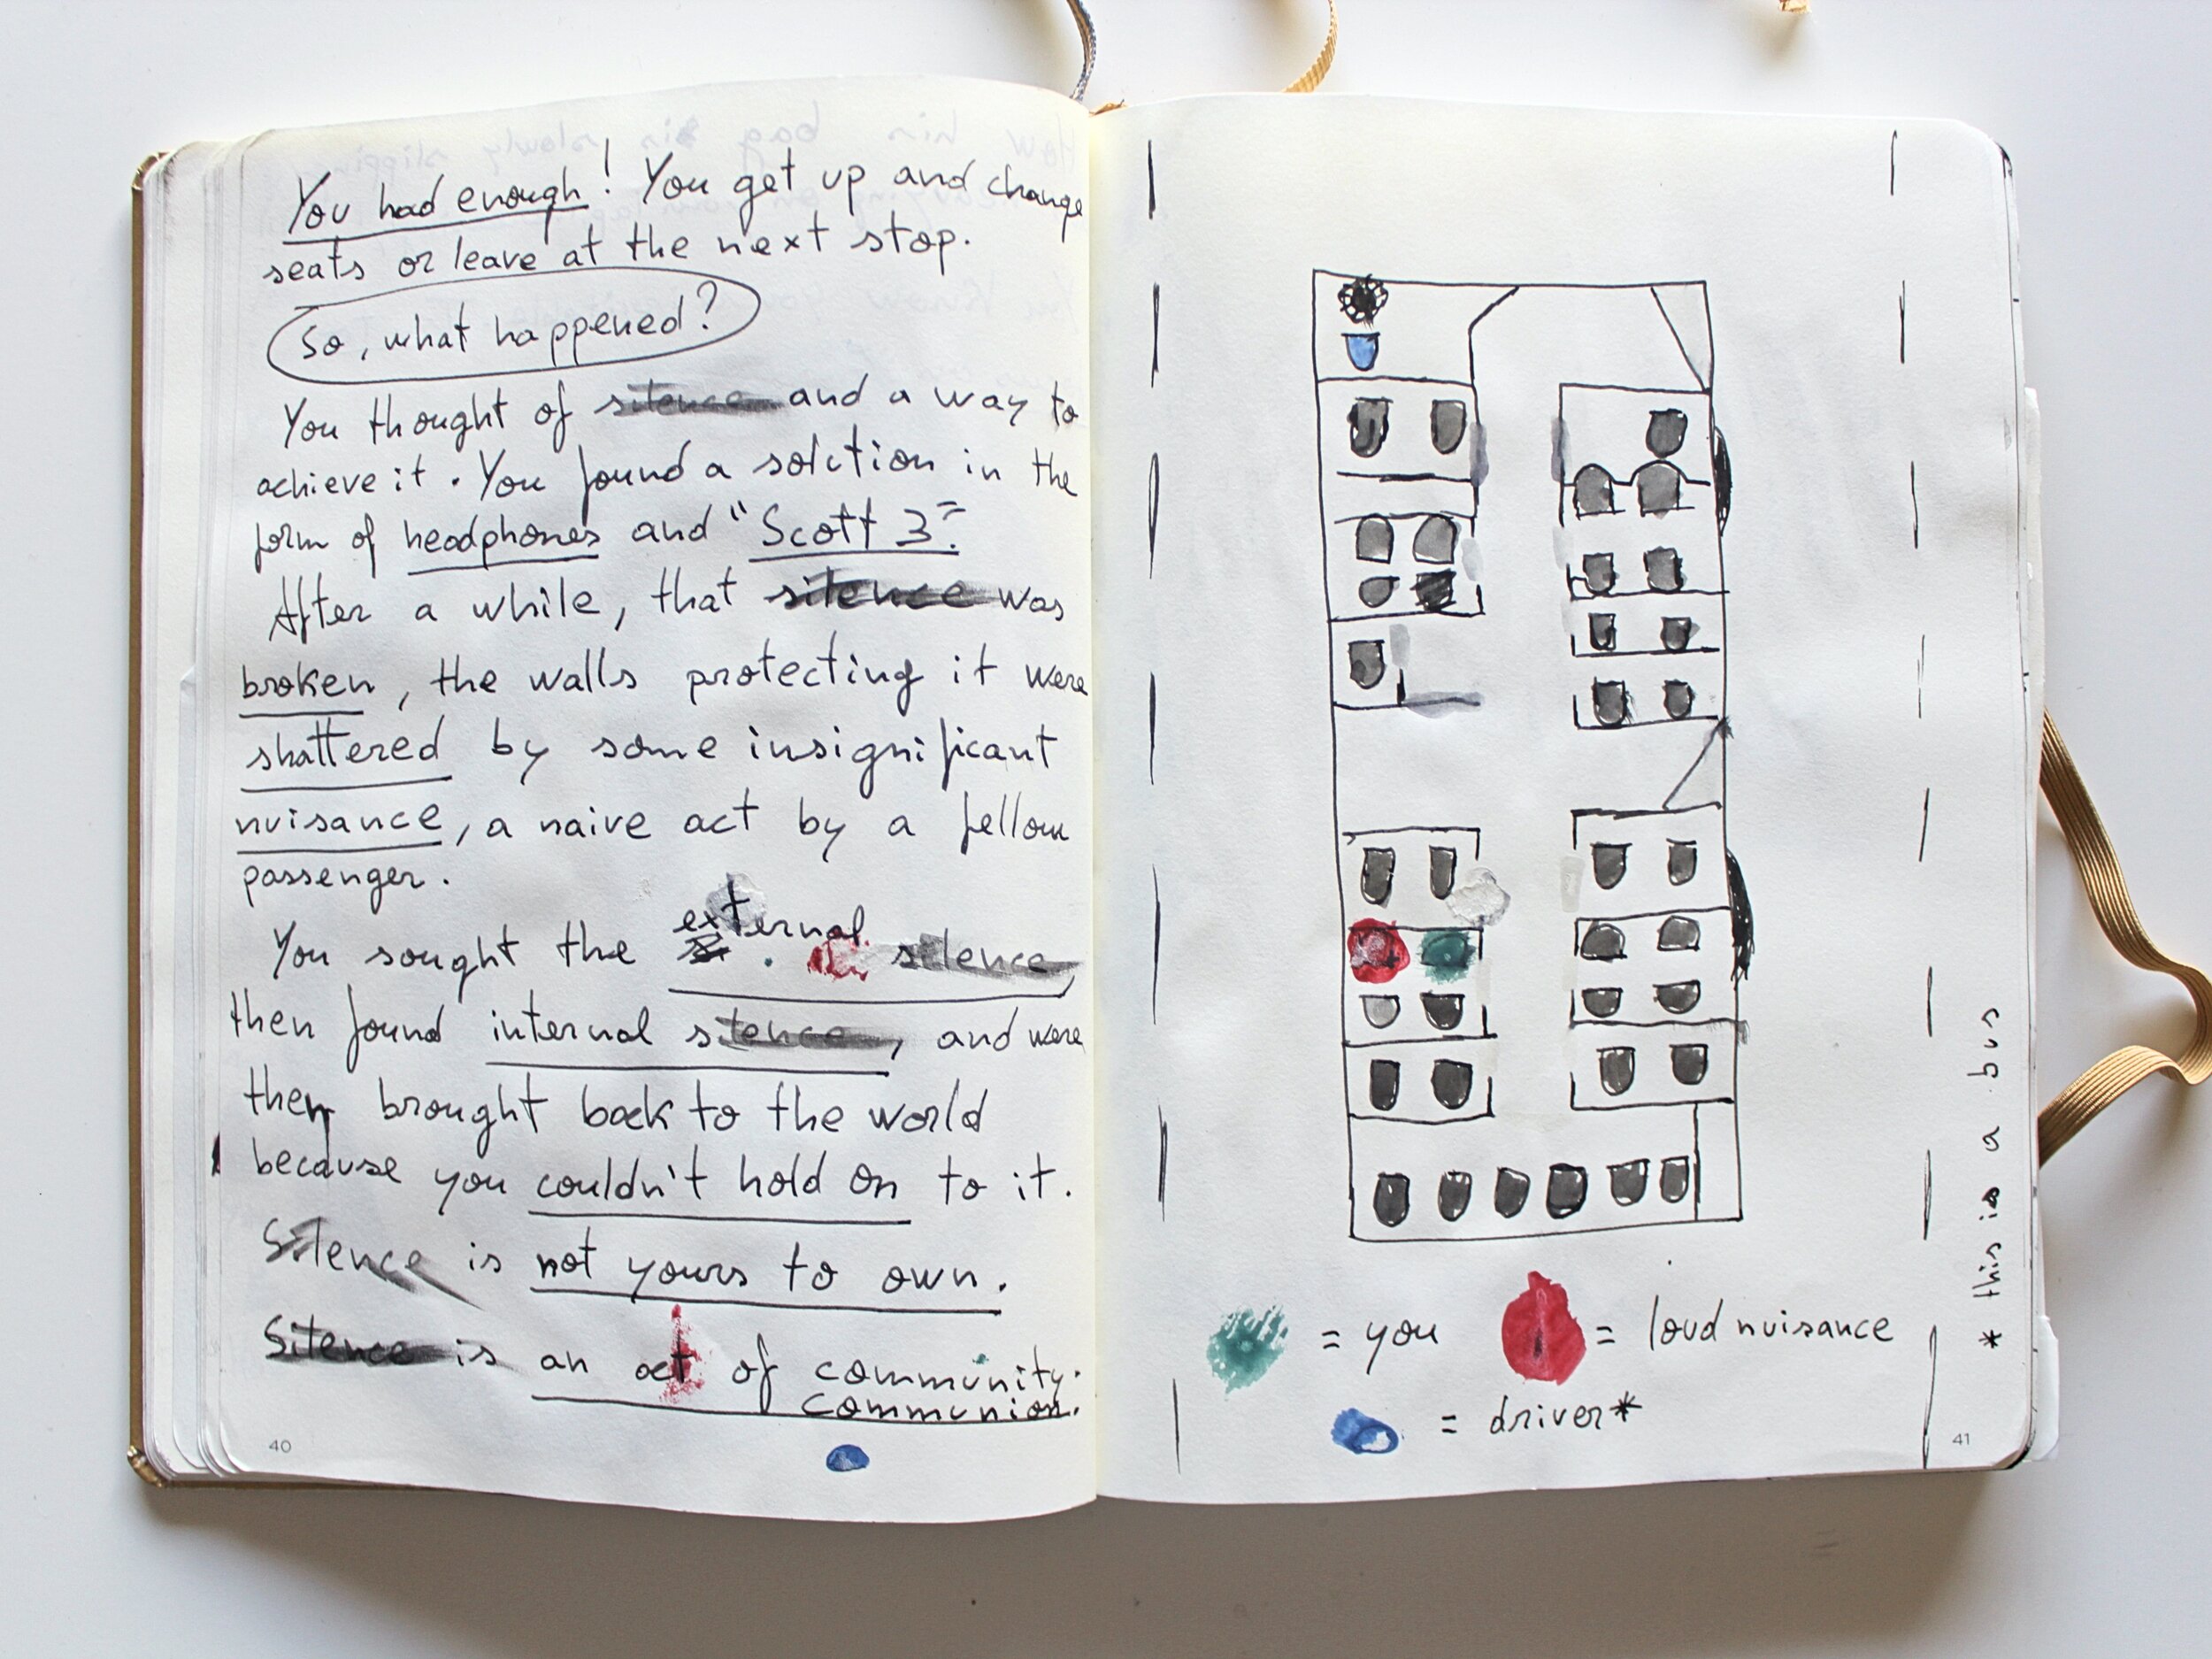 You had enough! You get up and change
seats or leave at the next stop.
So, what happened?
You thought of silence and a way to
achieve it. You found a solution in the
form of headphones and "Scott 3".
After a while, that silence was
broken, the walls protecting it were
shattered by some insignificant
nuisance, a naive act by a fellow
passenger.
You sought the external silence,
then found internal silence, and were
then brought back to the world
because you couldn't hold on to it.
Silence is not yours to own.
Silence is an act of community.
communion.
40
= you = loud nuisance
= driver*
* this is a bus
41